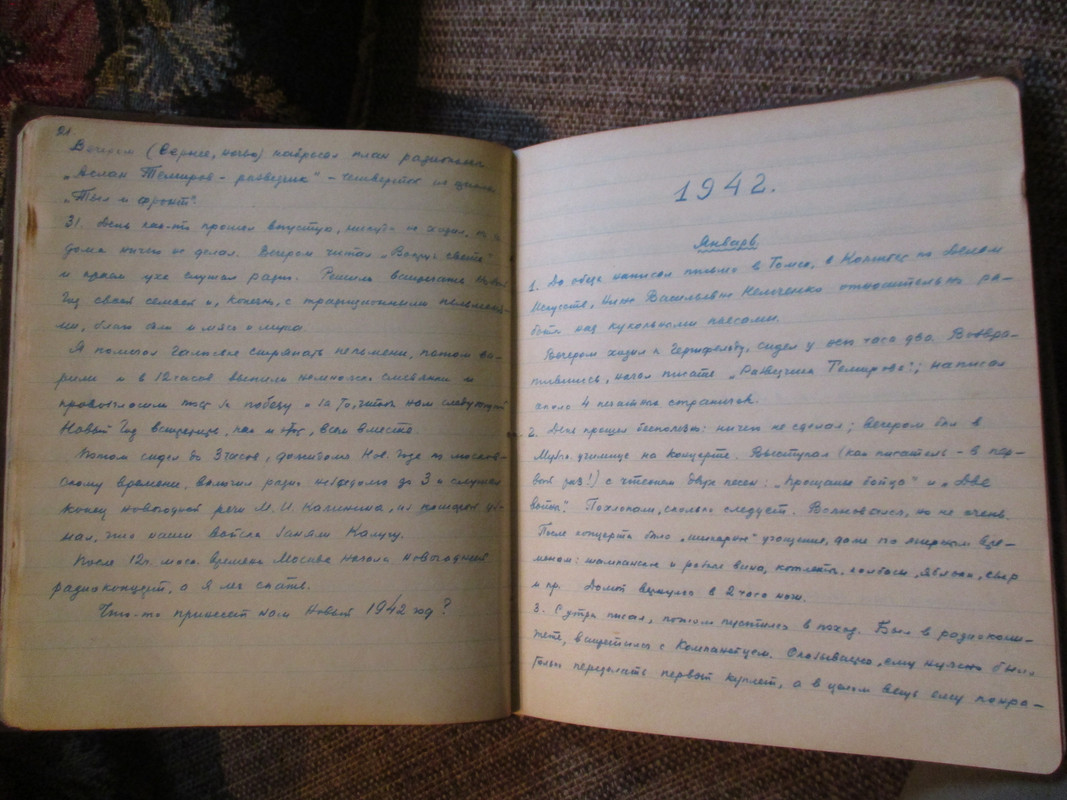 Вечером (вернее, ночью) набросал план радиопьесы
„Аслан Темиров – разведчик“ – четвертой из цикла
„Тыл и фронт“.
31. День как-то прошел впустую, никуда не ходил, но и
дома ничего не делал. Вечером читал „Вокруг света“
и краем уха слушал радио. Решили встречать Новый
Год своей семьей и, конечно, с традиционными пельменя-
ми, благо было и мясо и мука.
Я помогал Галюське стряпать пельмени, потом ва-
рили и в 12 часов выпили немножко сливянки и
провозгласили тост за победу и за то, чтобы нам следующий
Новый Год встретить, как и этот, всем вместе.
Потом сидел до 3 часов, дожидаясь Нов. Года по москов-
скому времени, включил радио незадолго до 3 и слушал
конец новогодней речи М. И. Калинина, из которой уз-
нал, что наши войска заняли Калугу.
После 12 ч. моск. времени Москва начала новогодний
радиоконцерт, а я лег спать.
Что-то принесет нам Новый 1942 год?
1942.
Январь.
1. До обеда написал письмо в Томск, в Комитет по Делам
Искусств, Васильевне относительно ра-
боты над кукольными пьесами.
Вечером ходил к Герцфельду, сидел у него часа два. Возвра-
тившись, начал писать „Разведчика Темирова“; написал
около 4 печатных страничек.
2. День прошел бесполезно: ничего не сделал; вечером был в
Музо. училище на концерте. Выступал (как писатель – в пер-
вый раз!) с чтением двух песен: „Прощание бойца“ и „Две
Похлопали, сколько следует. Волновался, но не очень.
После концерта было „шикарное“ угощение, даже по мирным вре-
менам: шампанское и разные вина, котлеты, колбаса, яблоки, сыр
и пр. Домой вернулся в 2 часа ночи.
3. С утра писал, потом пустился в поход. Был в радиокоми-
тете, встретился с Компанейцем. Оказывается, ему нужно было
только переделать первый куплет, а в целом вещь ему понра-